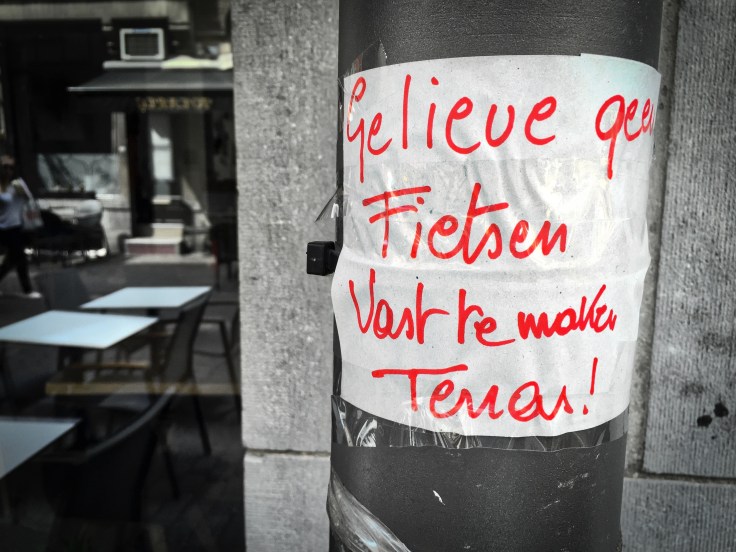 Gelieve geen
Fietsen
Vast te maken
Terras!